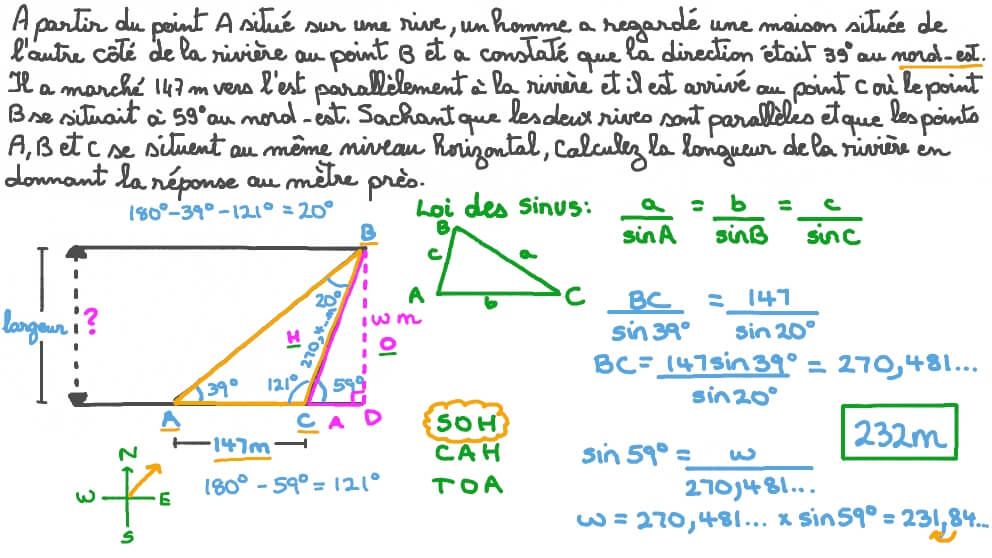 A partir du point A situé sur une rive, un homme a regardé une maison située de
l'autre côté de la rivière au point B et a constaté que la direction était 39° au nord-est.
Il a marché 147 m vers l'est parallèlement à la rivière et il est arrivé au point C où le point
B se situait à 59° au nord-est. Sachant que les deux rives sont parallèles et que les points
A, B et C se situent au même niveau horizontal, calculez la longueur de la rivière en
donnant la réponse au mètre près.
180°-39°-121°=20°
Loi des sinus:
a/sinA = b/sinB = c/sinC
B
c
a
A
b
C
B
largeur
?
20°
H
270,4...m
w m
O
39°
121°
59°
A
C
A
D
147m
180° - 59° = 121°
N
W
E
S
BC/sin39° = 147/sin20°
BC = 147sin39°/sin20° = 270,481...
SOH
CAH
TOA
232m
sin59° = w/270,481...
w = 270,481... x sin59° = 231,84...